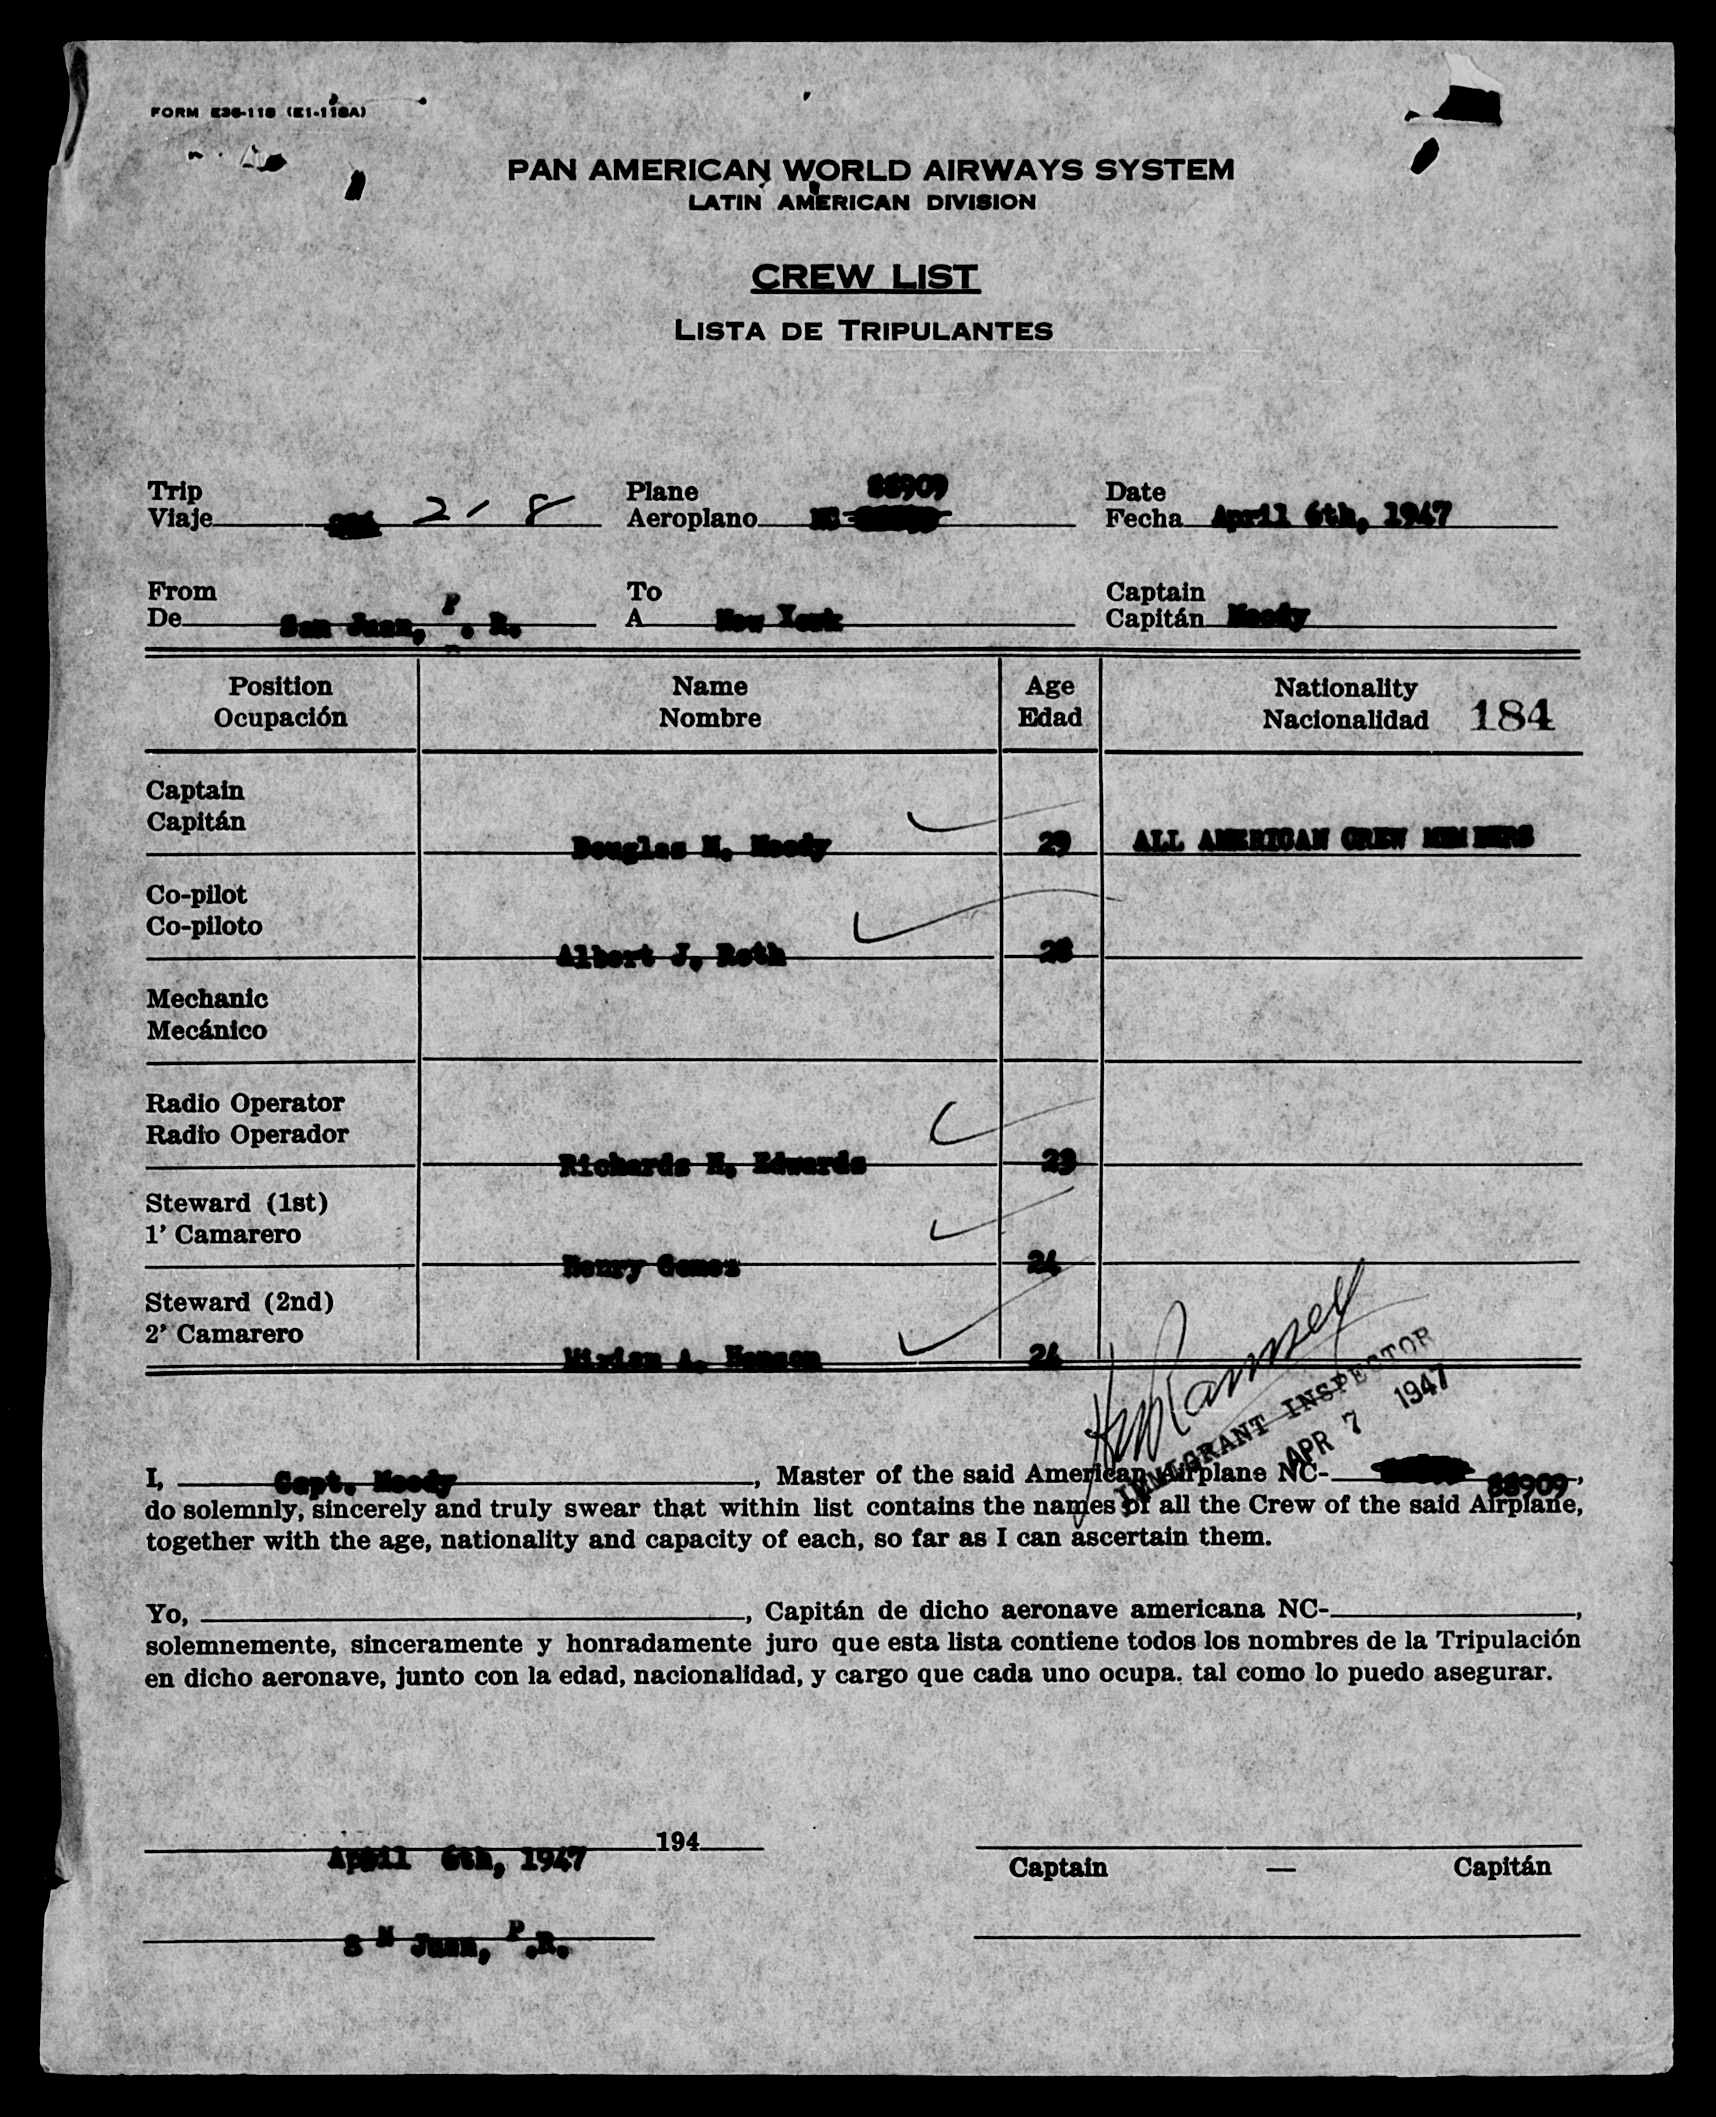 FORM E36-118 (E1-118A)
PAN AMERICAN WORLD AIRWAYS SYSTEM
LATIN AMERICAN DIVISION
CREW LIST
LISTA DE TRIPULANTES
Trip Plane 88909 Date
Viaje 2-8 Aeroplano NC Fecha April 6th, 1947
From To Captain
De San Juan, P. R. A New York Capitán Moody
Position Name Age Nationality
Ocupación Nombre Edad Nacionalidad 184
Captain
Capitán
Douglas M. Moody 29 ALL AMERICAN CREW MEMBERS
Co-pilot
Co-piloto
Albert J. Roth 28
Mechanic
Mecánico
Radio Operator
Radio Operador
Richards H. Edwards 23
Steward (1st)
1' Camarero
Henry Gomez 24
Steward (2nd)
2' Camarero
A. 24
Ramsey
IMMIGRANT INSPECTOR
APR 7 1947
I, Capt. Moody, Master of the said American Airplane NC- 88909,
do solemnly, sincerely and truly swear that within list contains the names of all the Crew of the said Airplane,
together with the age, nationality and capacity of each, so far as I can ascertain them.
Yo, , Capitán de dicho aeronave americana NC- ,
solemnemente, sinceramente y honradamente juro que esta lista contiene todos los nombres de la Tripulación
en dicho aeronave, junto con la edad, nacionalidad, y cargo que cada uno ocupa. tal como lo puedo asegurar.
April 6th, 1947 194
Captain — Capitán
S N Juan, P.R.